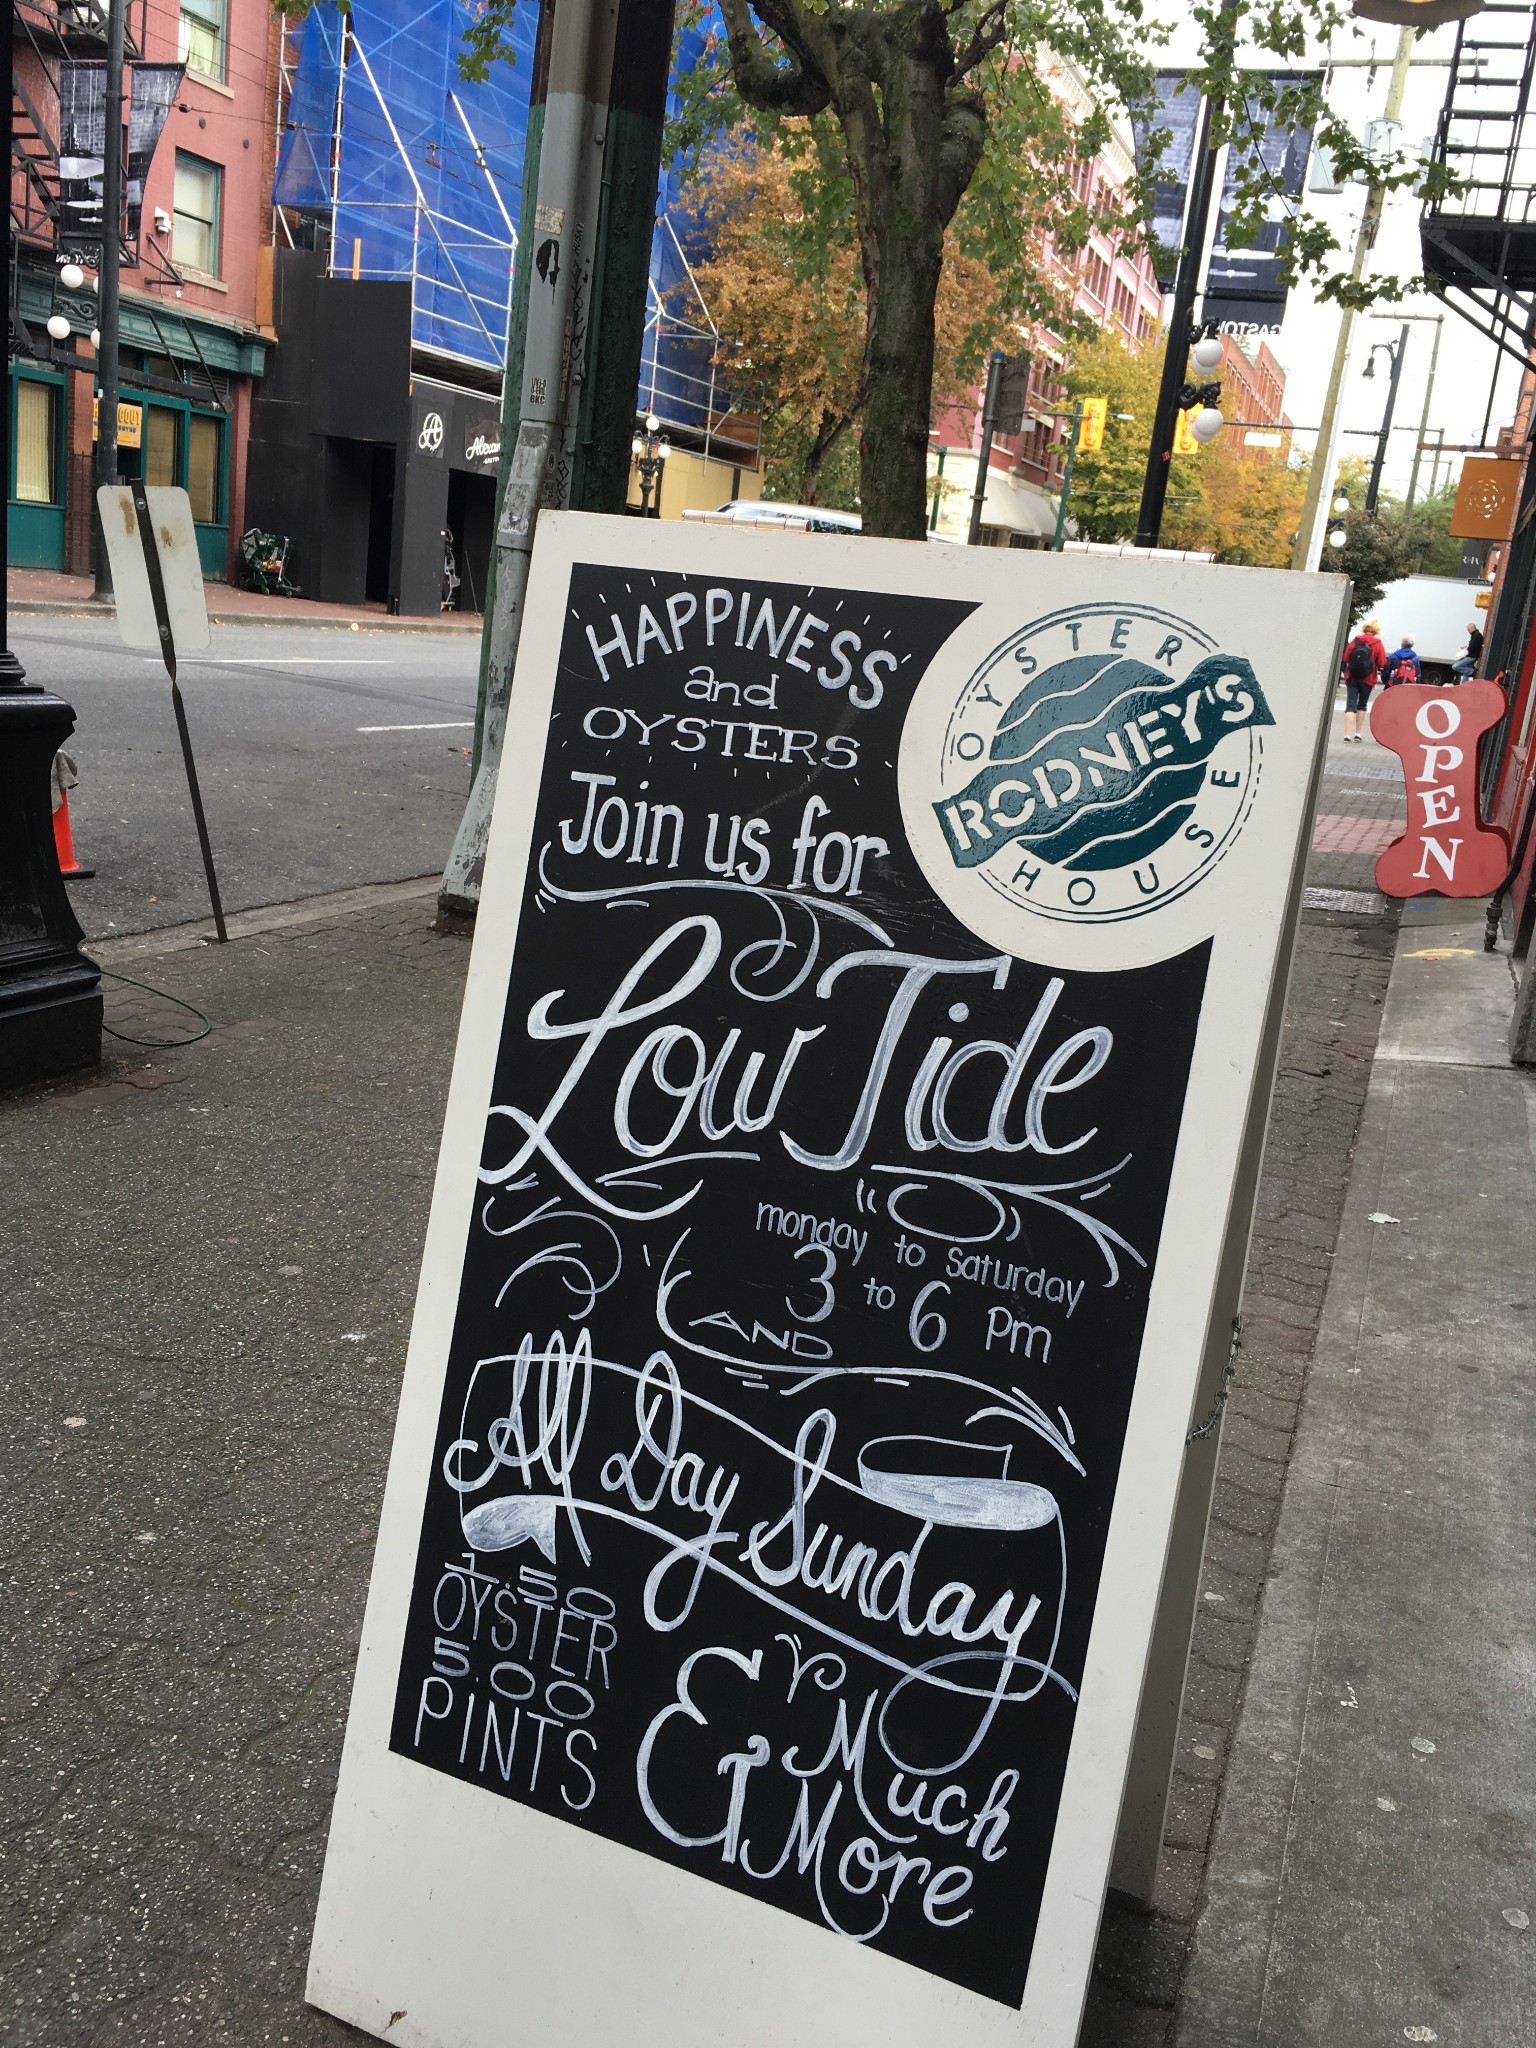 HAPPINESS
and
OYSTERS
Join us for
Low Tide
monday to saturday
3 to 6 pm
AND
All Day Sunday
1.50
OYSTER
5.00
PINTS
& Much
More
OYSTER
RODNEY'S
HOUSE
OPEN
A
GASTOW
BKC